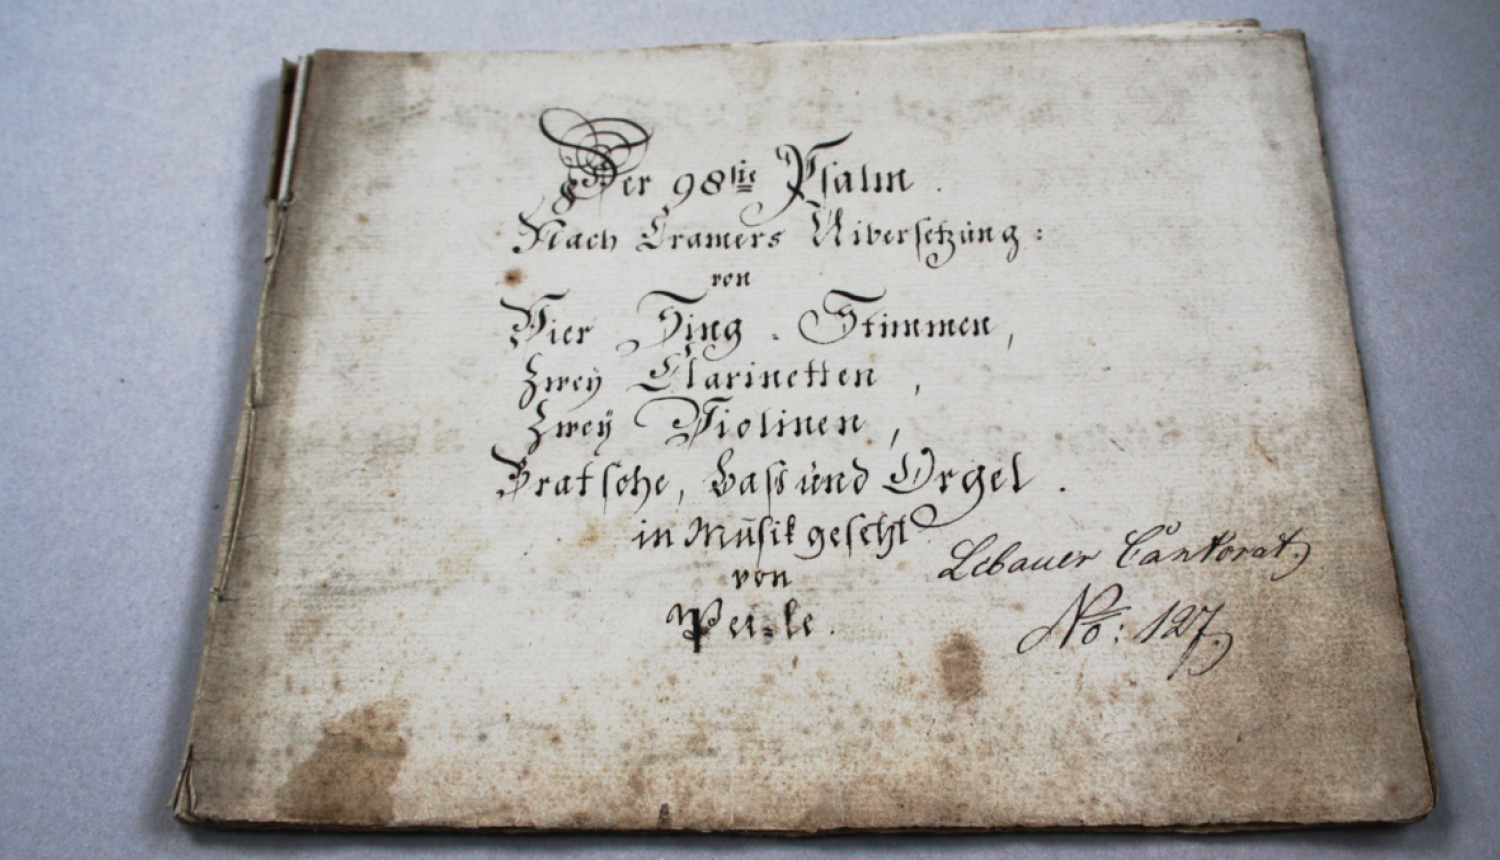 Der 98ste Psalm.
Nach Cramers Uibersetzüng:
von
Vier Sing-Stimmen,
Zwey Clarinetten,
Zweÿ Violinen,
Bratsche, Bass ünd Orgel.
in Müsik gesetzt
von
Lebauer Cantorat.
No: 127.